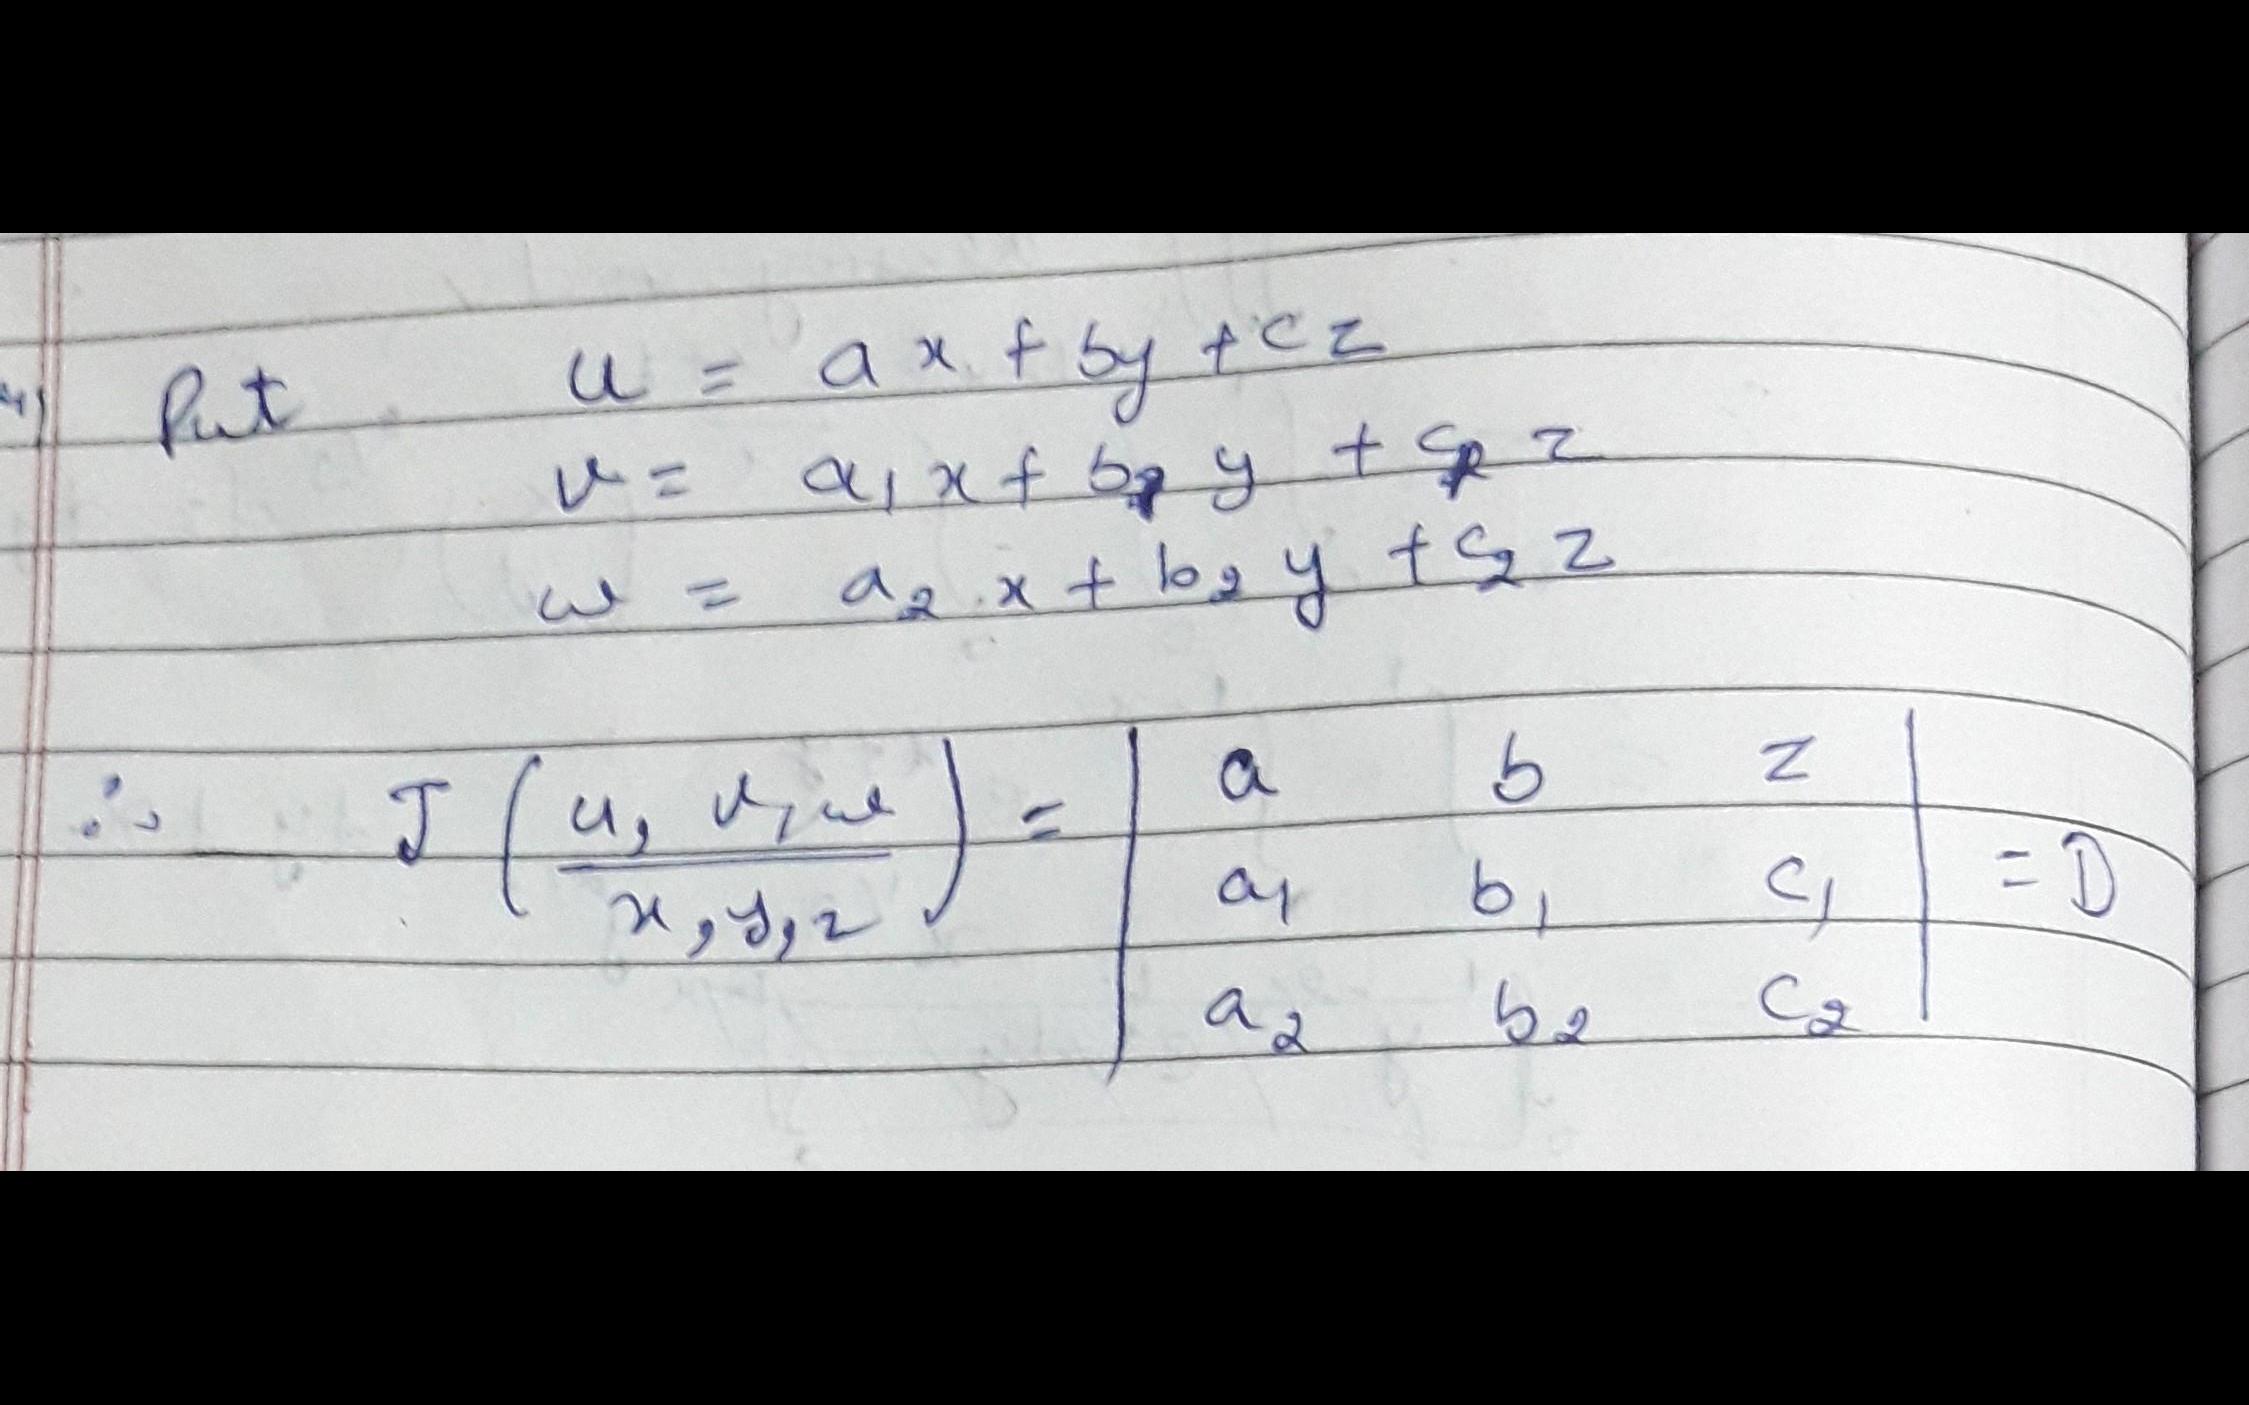 4) Put u = ax + by + cz
v = a₁x + b₁y + c₁z
w = a₂x + b₂y + c₂z
∴ J (u, v, w / x, y, z) = | a b z |
| a₁ b₁ c₁ | = D
| a₂ b₂ c₂ |